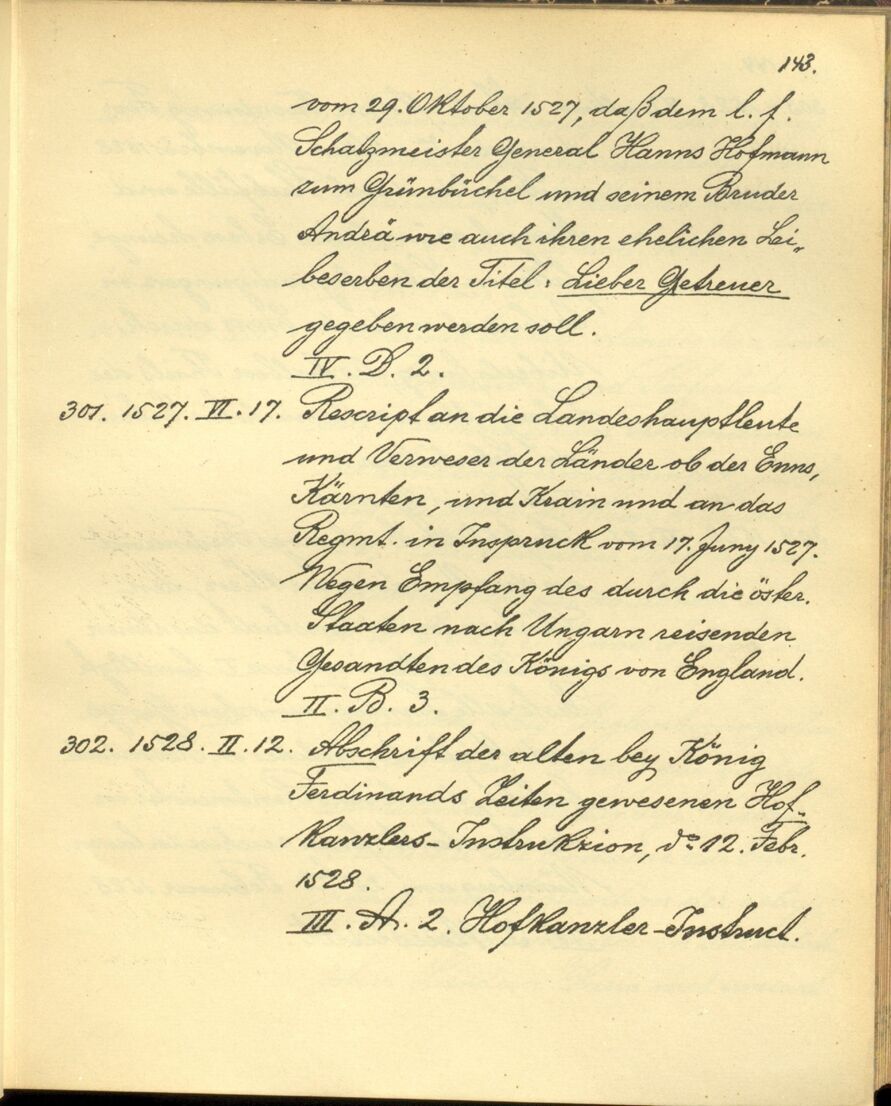 143.
vom 29. Oktober 1527, daß dem l. f.
Schatzmeister General Hanns Hofmann
zum Grünbüchel und seinem Bruder
Andrä wie auch ihren ehelichen Lei„
beserben der Titel: Lieber Getreuer
gegeben werden soll.
IV. D. 2.
301. 1527. VI. 17. Rescript an die Landeshauptleute
und Verweser der Länder ob der Enns,
Kärnten, und Krain und an das
Regmt. in Inspruck vom 17. Juny 1527.
Wegen Empfang des durch die öster.
Staaten nach Ungarn reisenden
Gesandten des Königs von England.
II. B. 3.
302. 1528. II. 12. Abschrift der alten bey König
Ferdinands Zeiten gewesenen Hof-
Kanzlers-Instrukzion, do 12. Febr.
1528.
III. A. 2. Hofkanzler-Instruct.